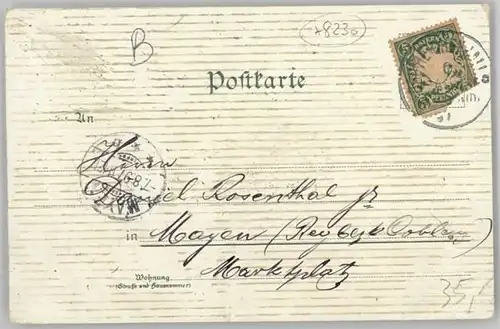 +8230
B
Postkarte
An
Herrn
Daniel Rosenthal jr
in Mayen (Rgbzk Coblenz)
Marktplatz
Wohnung
(Straße und Hausnummer)
MAYEN
7.8.97
5
35,-